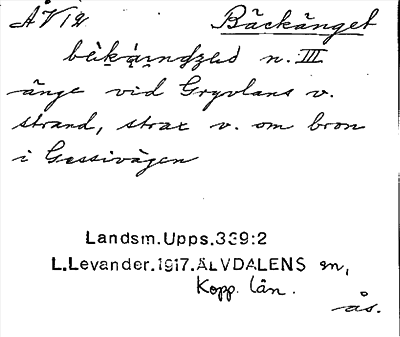 ÅV 12 Bäckänget
n. III
änge vid Gryvlans v.
strand, strax v. om bron
i Gessivägen
Landsm.Upps.339:2
L.Levander.1917.ÄLVDALENS sn,
Kopp. län.
ås.